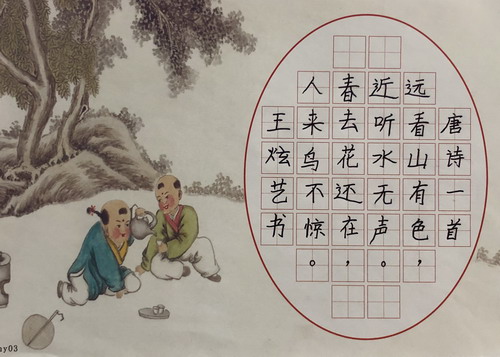 唐诗一首
远看山有色，
近听水无声。
春去花还在，
人来鸟不惊。
王炫艺书